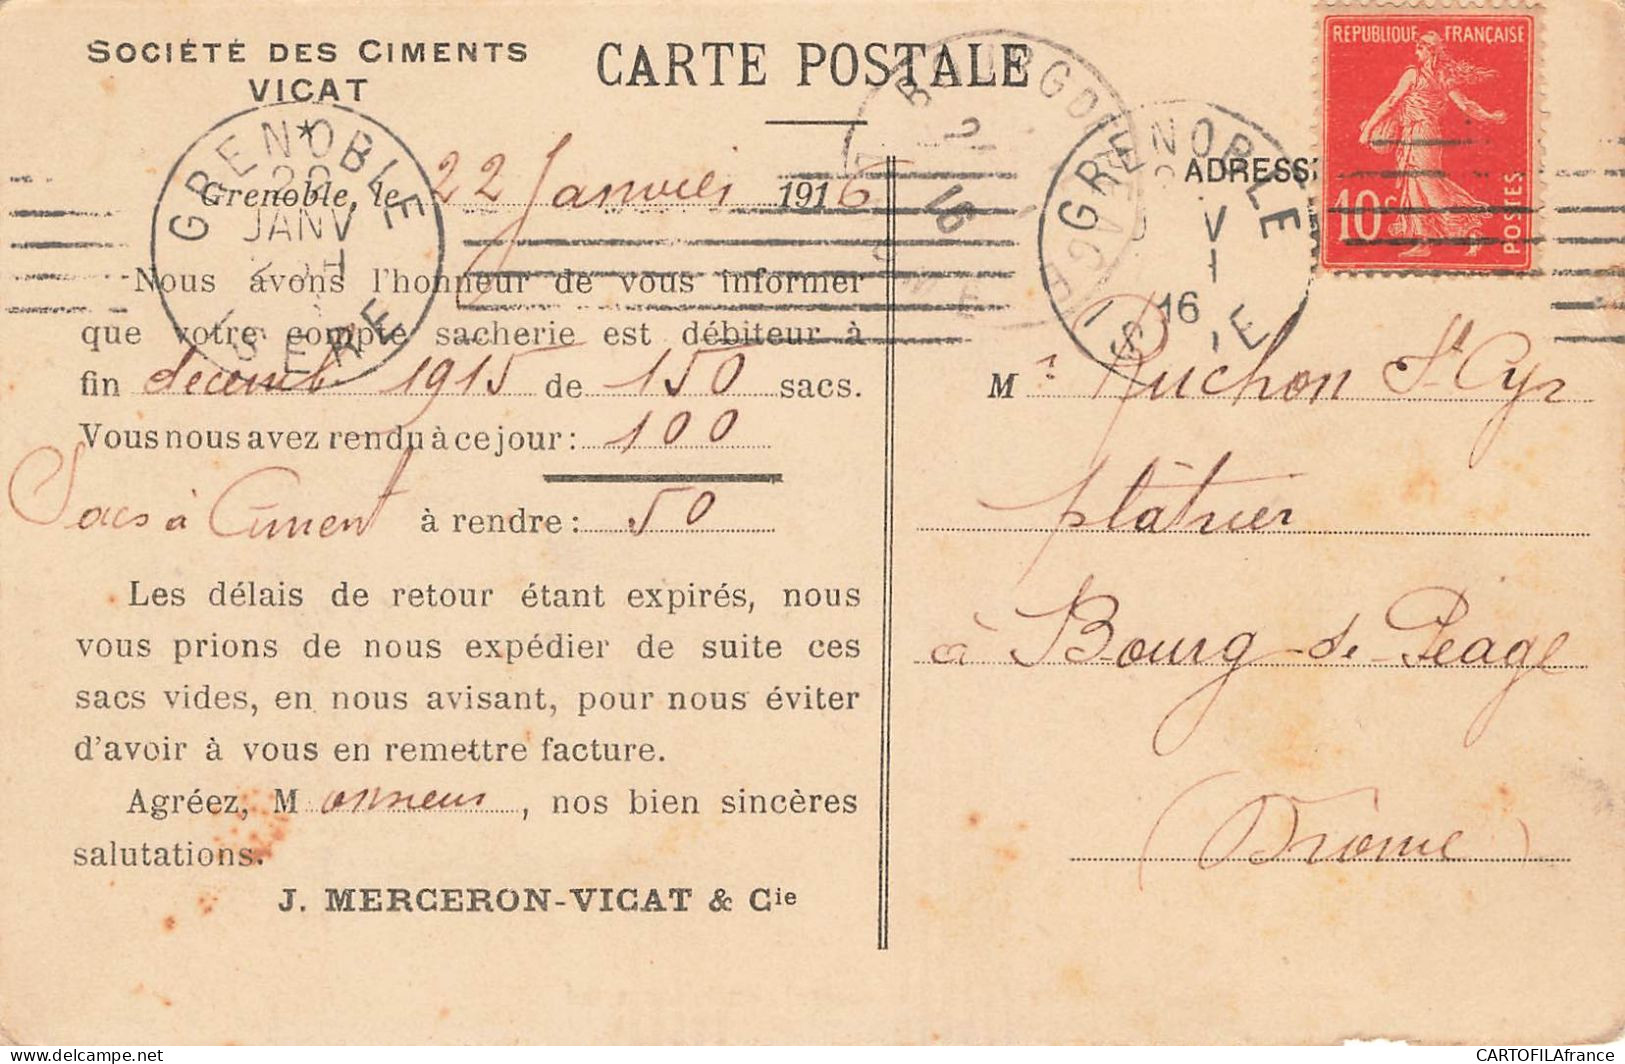 SOCIÉTÉ DES CIMENTS
VICAT
CARTE POSTALE
REPUBLIQUE FRANÇAISE
10c
POSTES
GRENOBLE
JANV
ISERE
GRENOBLE
16
BOURG DE PEAGE
16
ADRESS
Grenoble, le 22 Janvier 1916
Nous avons l'honneur de vous informer
que votre compte sacherie est débiteur à
fin décemb. 1915 de 150 sacs.
Vous nous avez rendu à ce jour : 100
Sacs à Ciment à rendre : 50
Les délais de retour étant expirés, nous
vous prions de nous expédier de suite ces
sacs vides, en nous avisant, pour nous éviter
d'avoir à vous en remettre facture.
Agréez, Monsieur, nos bien sincères
salutations.
J. MERCERON-VICAT & Cie
Mr Ruchon St Cyr
plâtrier
à Bourg-de-Péage
(Drôme)
CARTOFILAfrance